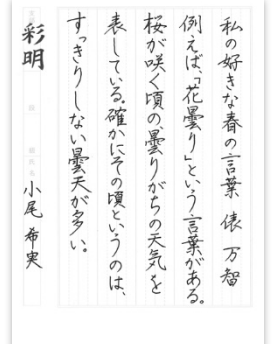 私の好きな春の言葉　俵 万智
例えば、「花曇り」という言葉がある。
桜が咲く頃の曇りがちの天気を
表している。確かにその頃というのは、
すっきりしない曇天が多い。
彩明
小尾 希実